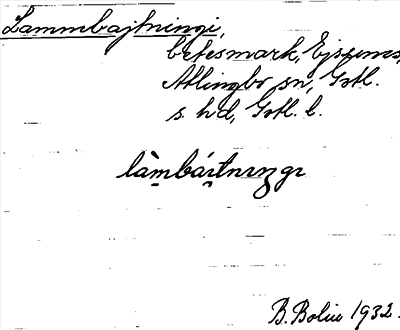 Lammbajtningi,
betesmark, Ejsums,
Atlingbo sn, Gotl.
s. hd, Gotl. l.
làmbáitningi
B. Bolin 1932.